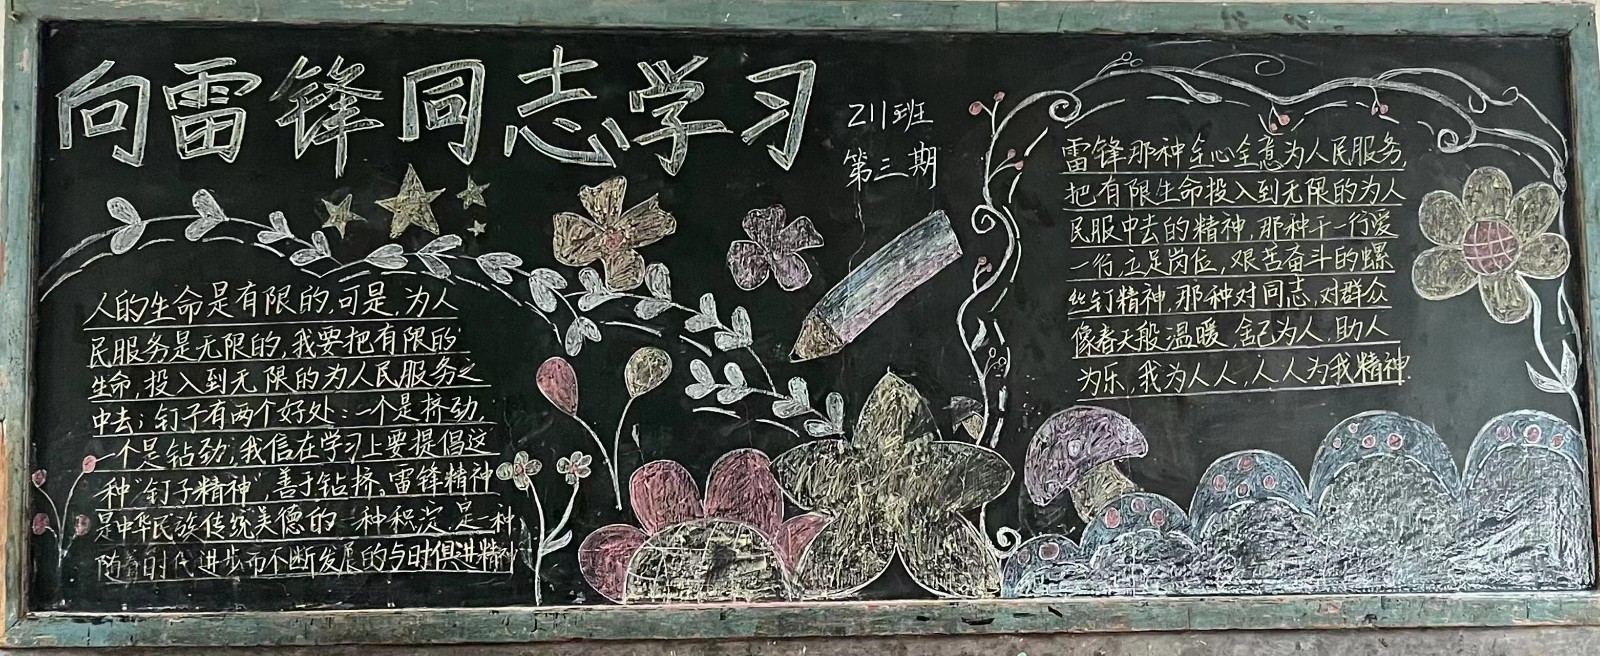 向雷锋同志学习
211班
第三期
人的生命是有限的,可是,为人
民服务是无限的,我要把有限的
生命,投入到无限的为人民服务之
中去;钉子有两个好处:一个是挤劲,
一个是钻劲;我信在学习上要提倡这
种"钉子精神",善于钻挤。雷锋精神
是中华民族传统美德的一种积淀,是一种
随着时代进步而不断发展的与时俱进精神
雷锋那种全心全意为人民服务,
把有限生命投入到无限的为人
民服中去的精神,那种干一行爱
一行,立足岗位,艰苦奋斗的螺
丝钉精神,那种对同志,对群众
像春天般温暖,舍己为人,助人
为乐,我为人人,人人为我精神.